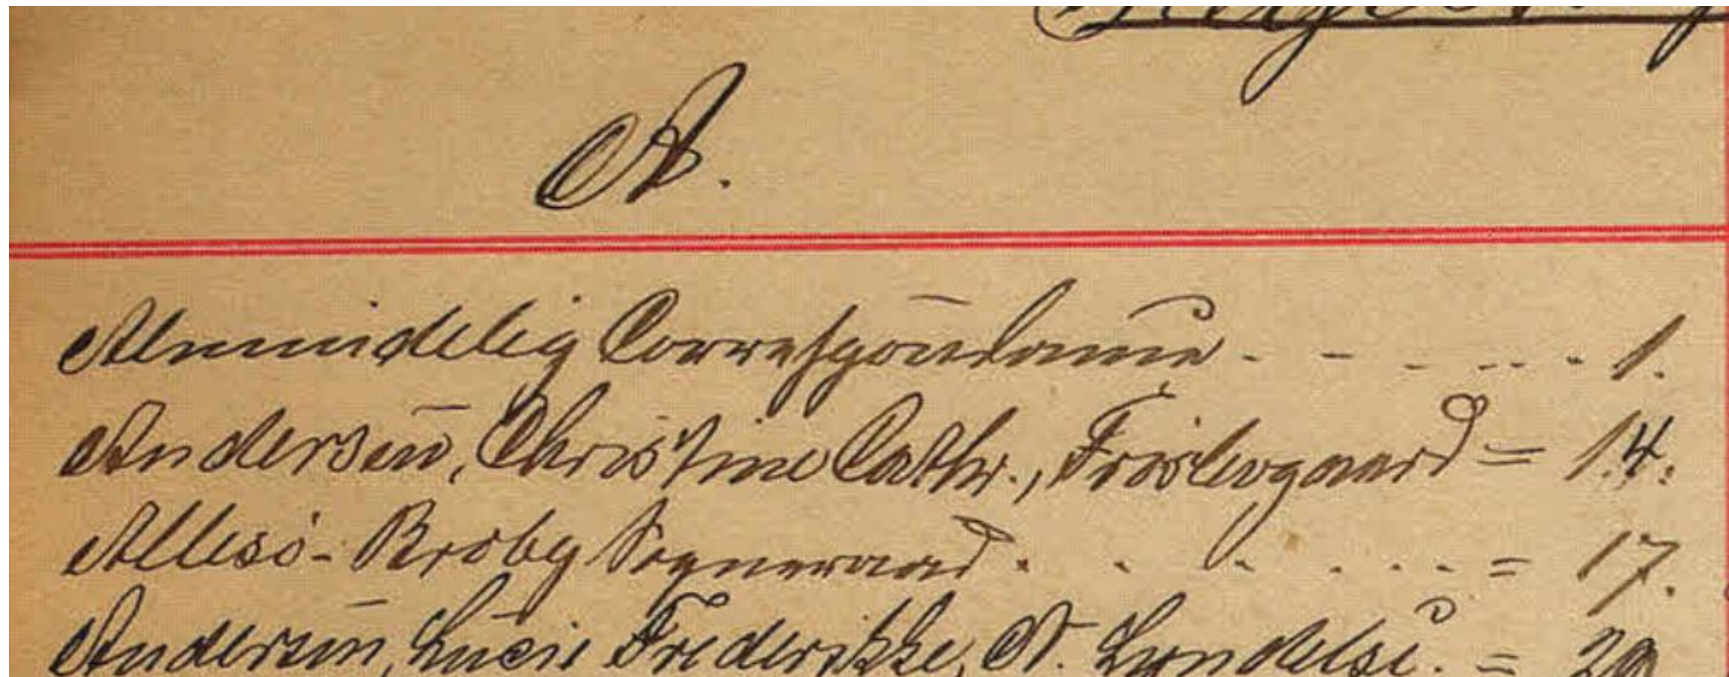 A.
Almindelig Correspondance - - - - - - 1.
Andersen, Christine Cathr., Frøslevgaard = 14.
Allesø - Broby Sogneraad . . . . . . . = 17.
Andersen, Lucie Frederikke, N. Lyndelse. = 20